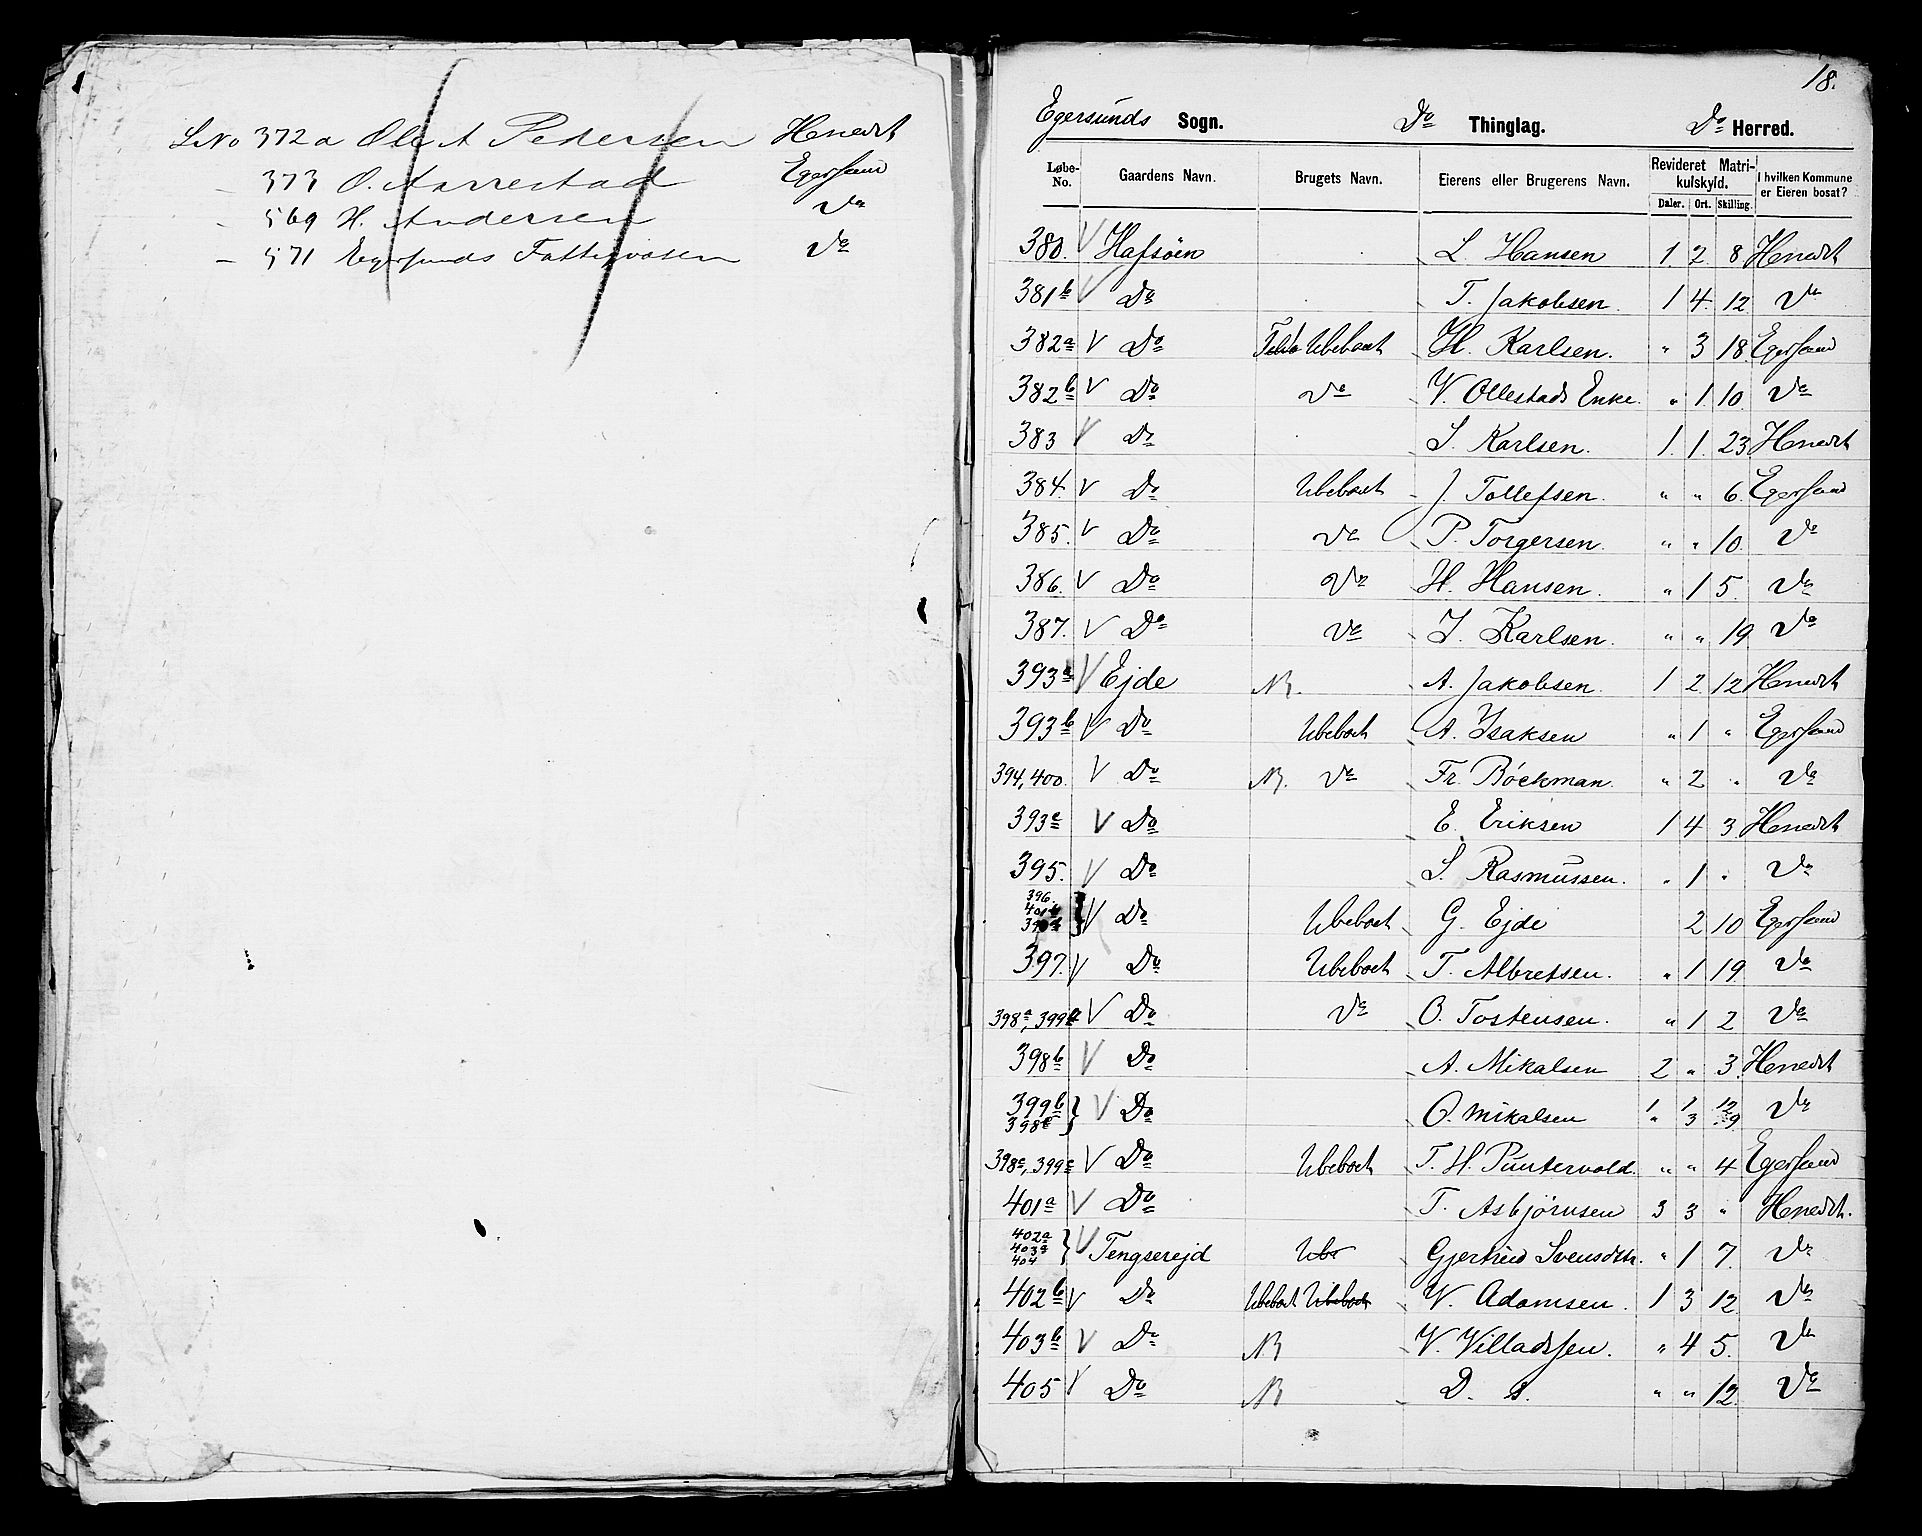 LNo 372a Ole A Pedersen Herredt
- 373 O. Aarrestad Egersund
- 569 H. Andersen Do
- 571 Egersunds Fattigvæsen Do
18.
Egersunds Sogn. Do Thinglag. Do Herred.
Løbe-No. Gaardens Navn. Brugets Navn. Eierens eller Brugerens Navn. Revideret Matrikulskyld. Daler. Ort. Skilling. I hvilken Kommune er Eieren bosat?
380. V Hafsöen L. Hansen 1. 2. 8. Herredt
381b V Do T. Jakobsen. 1 4. 12. Do
382a V Do Ubeboet H. Karlsen. " 3 18. Egersund
382b V Do Do V. Ollestads Enke. " 1. 10. Do
383 V Do S. Karlsen. 1. 1. 23 Herredt
384. V Do Ubeboet J. Tollefsen. " " 6. Egersund
385. V Do Do P. Torgersen. " " 10. Do
386. V Do Do H. Hansen. " 1 5. Do
387. V Do Do I. Karlsen. " " 19 Do
393a V Ejde N. A. Jakobsen. 1 2 12 Herredt
393b V Do Ubeboet A. Isaksen " 1 " Egersund
394, 400. V Do N. Do Fr. Böckman. " 2 " Do
393c V Do E. Eriksen 1 4 3 Herredt
395. V Do S. Rasmussen. " 1 " Do
396. 401b } V Do Ubeboet G. Ejde 2 10 Egersund
397. V Do Ubeboet T. Albretsen. " 1 19. Do
398a, 399a V Do Do O. Tostensen. " 1 2 Do
398b V Do A. Mikalsen 2 " 3. Herredt
399b 398c } V Do O. Mikalsen 1 1 12 " 3 9. Do
398c, 399c V Do Ubeboet T. H. Puntervold. " " 4 Egersund
401a V Do T. Asbjørnsen 3 3 " Herredt.
402a 403a 404 } V Tengsereid Ube Gjertrud Svensdtr. " 1 7. Do
402b V Do Ubeboet Ubeboet V. Adamsen. 1 3 12. Do
403b V Do N V. Villadssen. " 4 5. Do
405 V Do N D. s. " " 12. Do